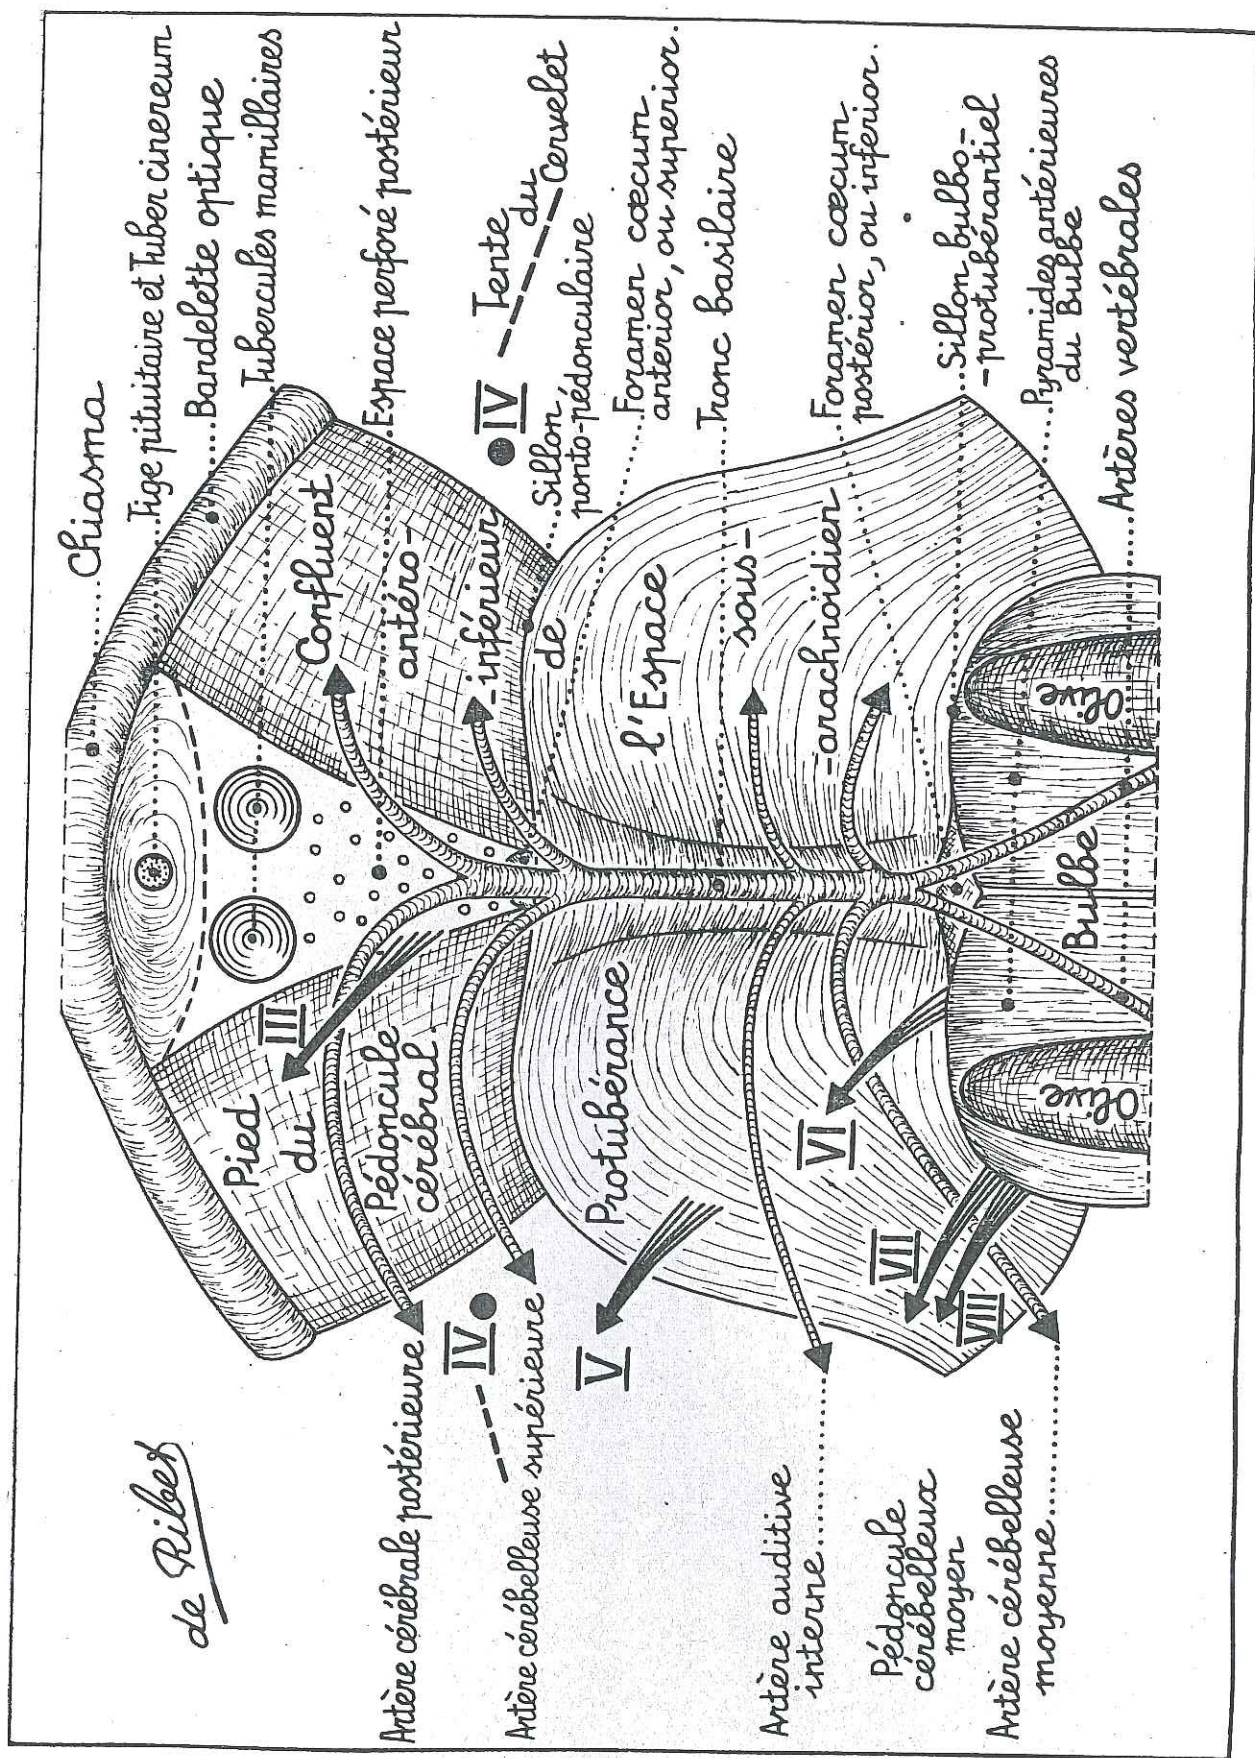 de Ribet
Chiasma
Tige pituitaire et Tuber cinereum
Bandelette optique
Tubercules mamillaires
Espace perforé postérieur
IV
Tente
du
Cervelet
Sillon
ponto-pédonculaire
Foramen cœcum
anterior, ou superior.
Tronc basilaire
Foramen cœcum
postérior, ou inferior.
Sillon bulbo-
-protubérantiel
Pyramides antérieures
du Bulbe
Artères vertébrales
Confluent
antéro-
-inférieur
de
l'Espace
sous-
-arachnoïdien
Olive
Bulbe
Olive
III
Pied
du
Pédoncule
cérébral
Protubérance
VI
VII
VIII
V
IV
Artère cérébrale postérieure
Artère cérébelleuse supérieure
Artère auditive
interne
Pédoncule
cérébelleux
moyen
Artère cérébelleuse
moyenne